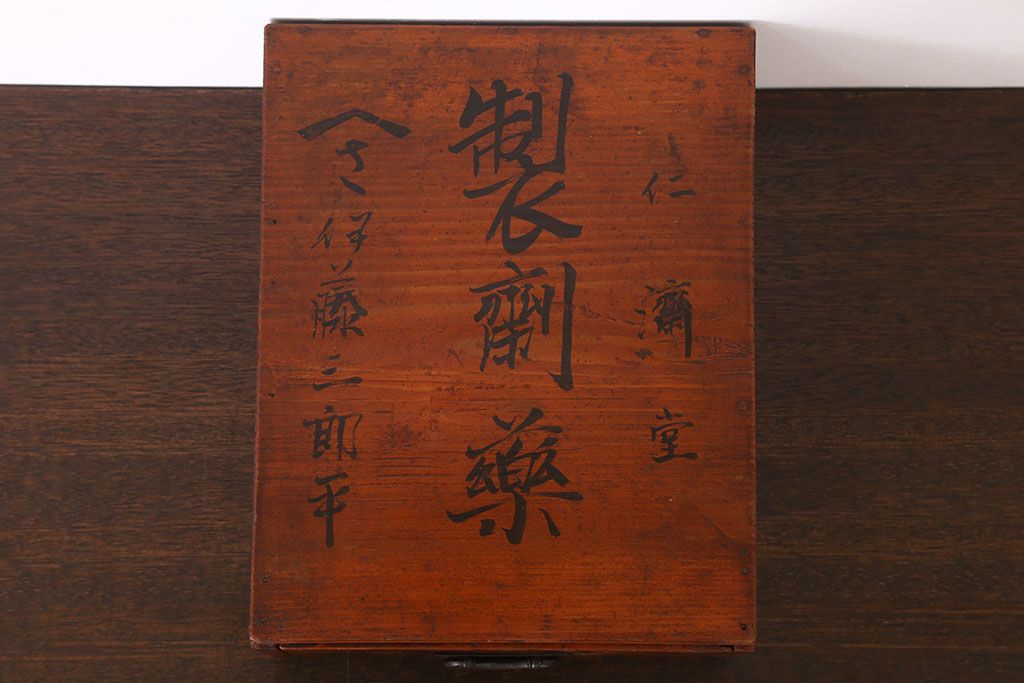 仁濟堂
製劑藥
𠆢さ伊藤三郎平